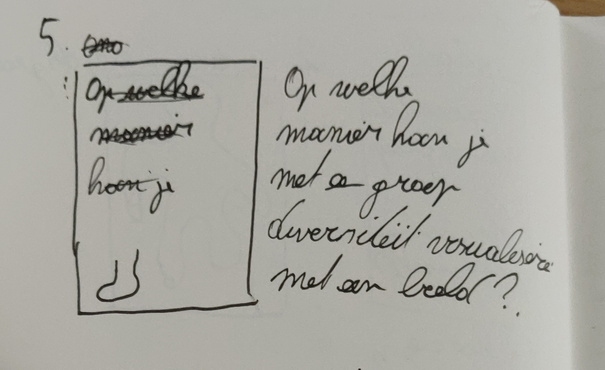 5.
Op welke
manier
kan je
Op welke
manier kan je
met een groep
diversiteit visualiseren
met een beeld?